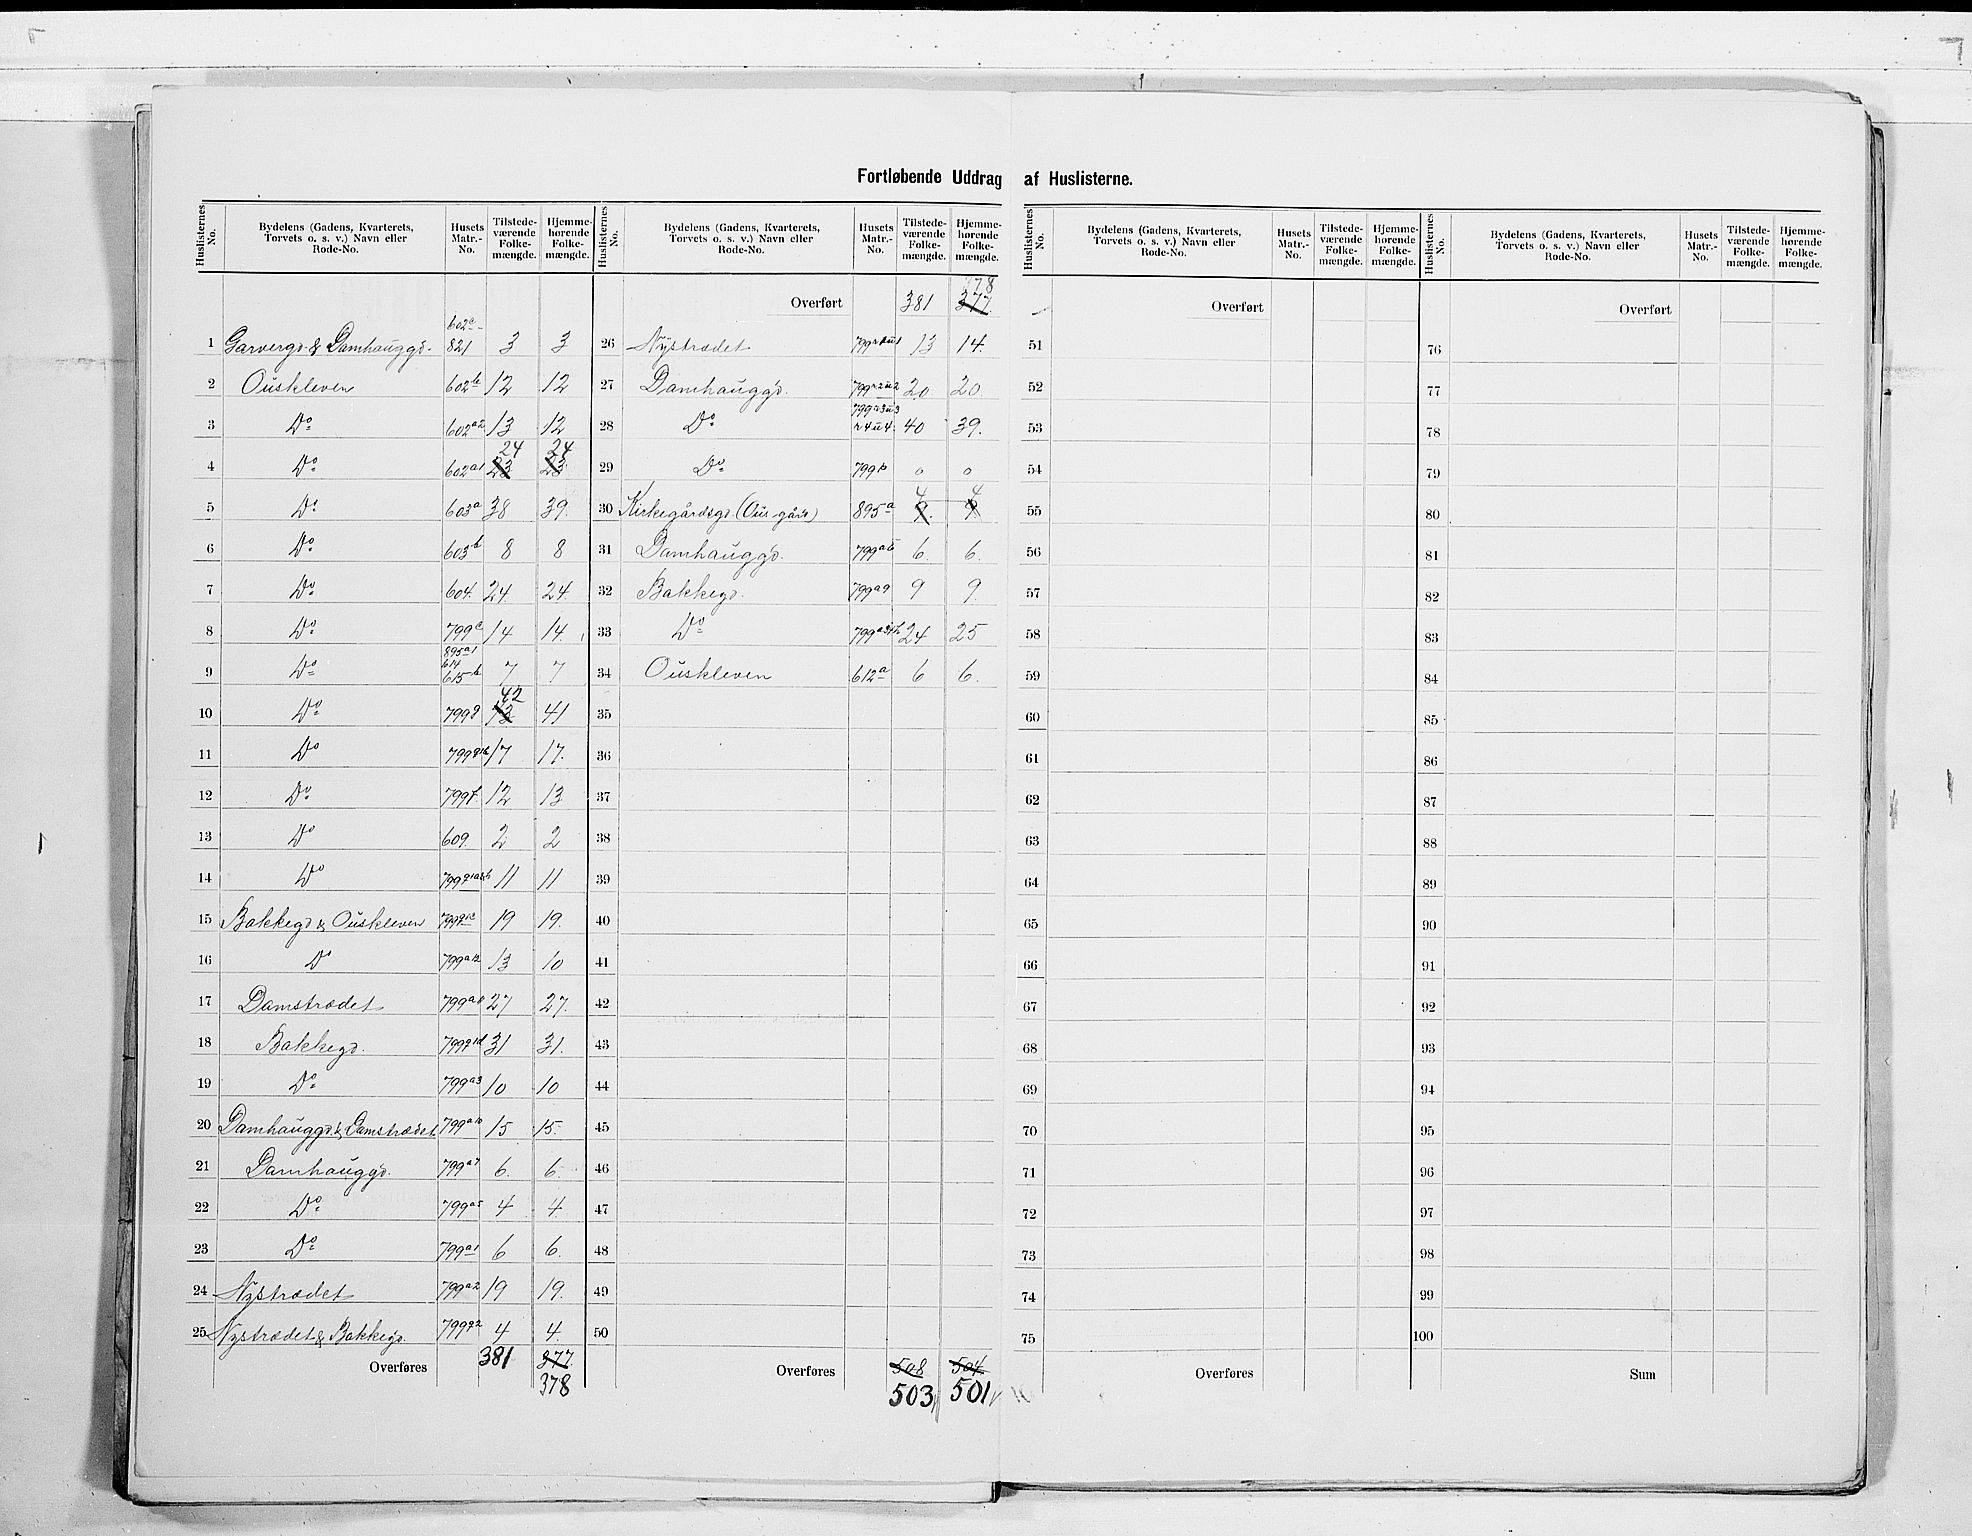 Fortløbende Uddrag af Huslisterne.
Huslisternes No. | Bydelens (Gadens, Kvarterets, Torvets o. s. v.) Navn eller Rode-No. | Husets Matr.-No. | Tilstedeværende Folkemængde. | Hjemmehørende Folkemængde.
1 Garvergd. & Damhauggd. 602c - 821 3 3
2 Ouskleven 602b 12 12
3 Do 602a2 13 12
4 Do 602a1 23 24 23 24
5 Do 603a 38 39.
6 Do 603b 8 8
7 Do 604. 24. 24.
8 Do 799c 14 14.
9 Do 895a1 614 615b 7 7
10 Do 799g 42 41
11 Do 17 17.
12 Do 799f. 12 13
13 Do 609. 2 2
14 Do 11 11
15 Bakkegd & Ouskleven 19 19.
16 Do 799a12 13 10
17 Damstrædet 27 27.
18 Bakkegd. 31 31.
19 Do 799a3 10 10
20 Damhauggd. & Damstrædet 799a10 15 15.
21 Damhauggd. 799a7 6. 6.
22 Do 799a5 4 4.
23 Do 799a1 6 6.
24 Nystrædet 799a2 19 19.
25 Nystrædet & Bakkegd. 4 4.
Overføres 381 377. 378
Huslisternes No. | Bydelens (Gadens, Kvarterets, Torvets o. s. v.) Navn eller Rode-No. | Husets Matr.-No. | Tilstedeværende Folkemængde. | Hjemmehørende Folkemængde.
Overført 381 377. 378
26 Nystrædet 13 14.
27 Damhauggd. 799r2u2 20. 20.
28 Do 799r3u3 r4u4. 40 39.
29 Do 0 0
30 Kirkegårdsgd. (Ous gade) 895a 4 4
31 Damhauggd. 799a6 6. 6.
32 Bakkegd. 799a9 9 9.
33 Do 24 25
34 Ouskleven 612a 6 6.
35
36
37
38
39
40
41
42
43
44
45
46
47
48
49
50
Overføres 508 504. 503 501
Huslisternes No. | Bydelens (Gadens, Kvarterets, Torvets o. s. v.) Navn eller Rode-No. | Husets Matr.-No. | Tilstedeværende Folkemængde. | Hjemmehørende Folkemængde.
Overført
51
52
53
54
55
56
57
58
59
60
61
62
63
64
65
66
67
68
69
70
71
72
73
74
75
Overføres
Huslisternes No. | Bydelens (Gadens, Kvarterets, Torvets o. s. v.) Navn eller Rode-No. | Husets Matr.-No. | Tilstedeværende Folkemængde. | Hjemmehørende Folkemængde.
Overført
76
77
78
79
80
81
82
83
84
85
86
87
88
89
90
91
92
93
94
95
96
97
98
99
100
Sum